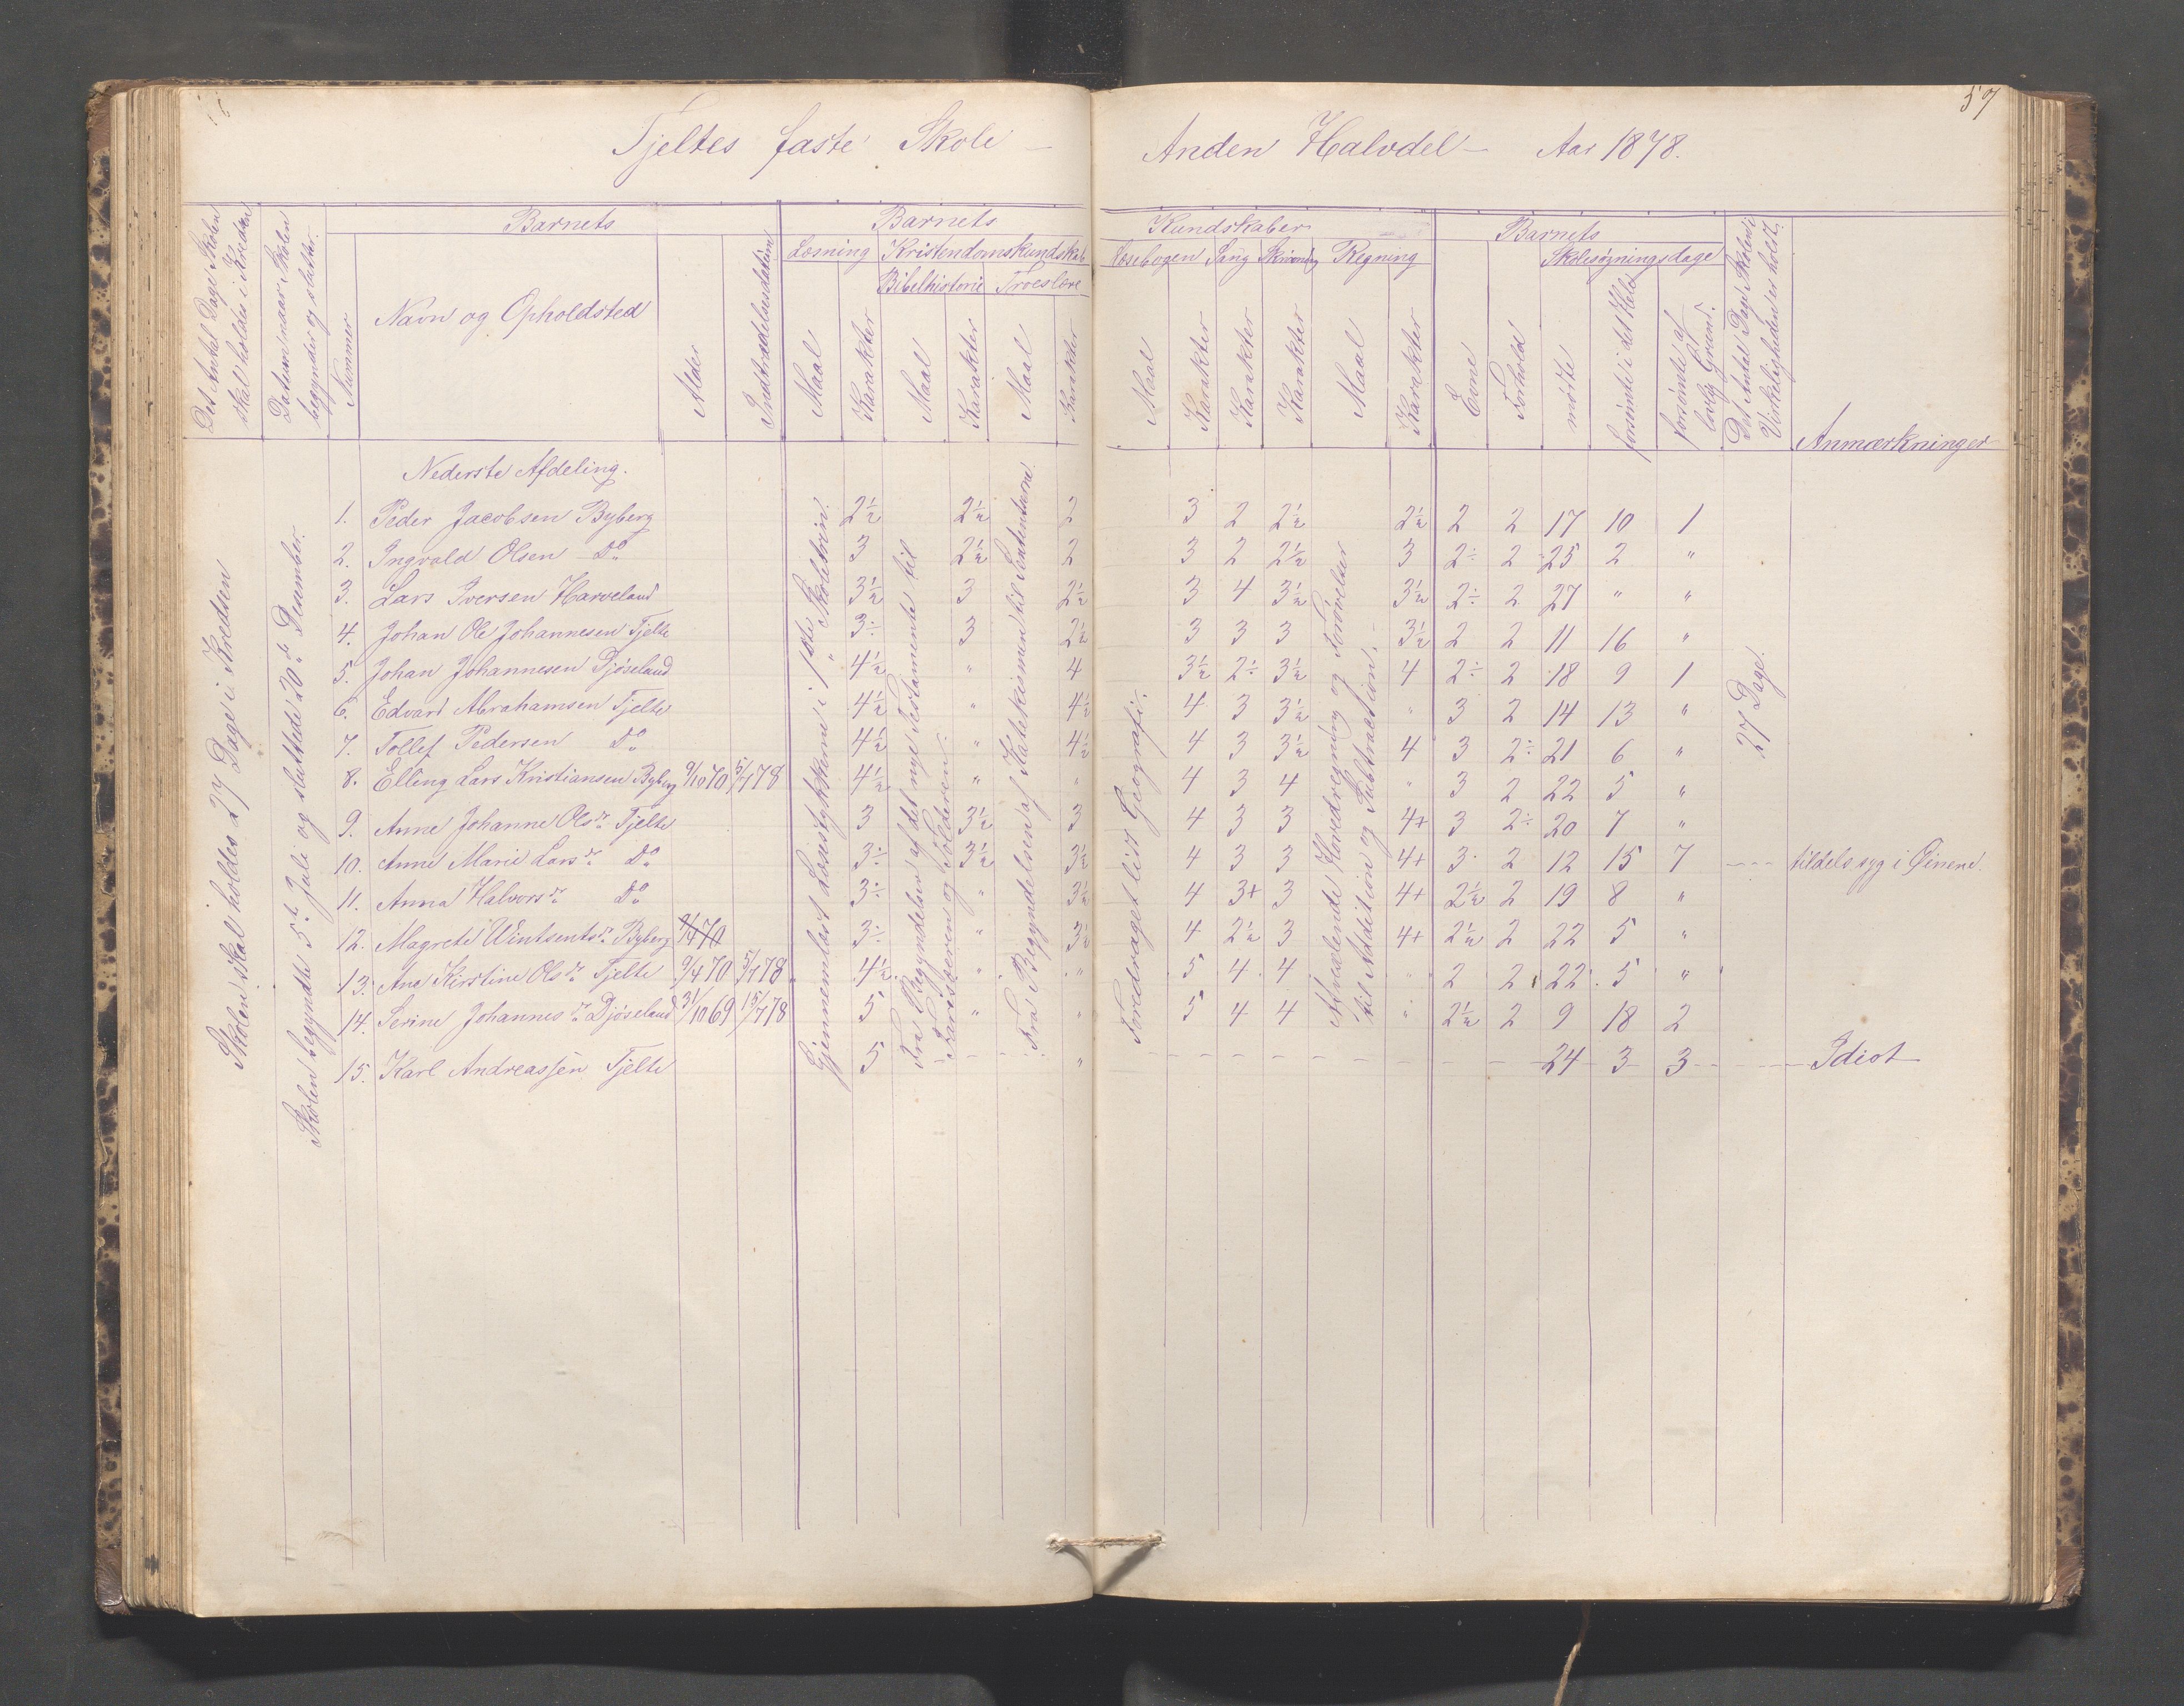 57
Tjeltes faste Skole — Anden Halvdel — Aar 1878.
Det Antal Dage Skolen skal holdes i Kredsen
Datum naar Skolen begynder og slutter.
Nummer
Barnets
Navn og Opholdsted
Alder
Indtrædelsesdatum
Barnets
Læsning
Maal
Karakter
Kristendomskundskab
Bibelhistorie
Maal
Karakter
Troeslære
Maal
Karakter
Kundskaber
Læsebogen
Maal
Karakter
Sang
Karakter
Skrivning
Karakter
Regning
Maal
Karakter
Barnets
Evne
Forhold
Skolesøgningsdage
mødte
forsømte i det Hele
forsømte af lovlig Grund.
Det Antal Dage Skolen i Virkeligheden er holdt.
Anmærkninger
Skolen skal holdes 27 Dage i Kredsen
Skolen begyndte 5te Juli og sluttede 20de December.
Gjennemlæst Læsestykkerne i 1ste Skoletrin.
Fra Begyndelsen af det nye Testamente til Farisæeren og Tolderen.
Fra Begyndelsen af Katekismen til Sententserne
Foredraget lidt Geografi.
Anvendende Hovedregning og Forøvelser til Addition og Subtraction.
27 Dage.
Nederste Afdeling.
1. Peder Jacobsen Byberg 2½ 2½ 2 3 2 2½ 2½ 2 2 17 10 1
2. Ingvald Olsen Do 3 2½ 2 3 2 2½ 3 2÷ 2 25 2 "
3. Lars Iversen Harveland 3½ 3 2½ 3 4 3½ 3½ 2÷ 2 27 " "
4. Johan Ole Johannesen Tjelte 3÷ 3 2½ 3 3 3 3½ 2 2 11 16 "
5. Johan Johannesen Djøseland 4½ " 4 3½ 2÷ 3½ 4 2÷ 2 18 9 1
6. Edvard Abrahamsen Tjelte 4½ " 4½ 4 3 3½ " 3 2 14 13 "
7. Tollef Pedersen Do 4½ " 4½ 4 3 3½ 4 3 2÷ 21 6 "
8. Elling Lars Kristiansen Byberg 9/10 70 5/7 78 4½ " " 4 3 4 " 3 2 22 5 "
9. Anne Johanne Olsdr Tjelte 3 3½ 3 4 3 3 4+ 3 2÷ 20 7 "
10. Anne Marie Larsdr Do 3÷ 3½ 3½ 4 3 3 4+ 3 2 12 15 7 tildels syg i Øinene.
11. Anna Halvorsdr Do 3÷ " 3½ 4 3+ 3 4+ 2½ 2 19 8 "
12. Magrete Wintsentsdr Byberg 9/4 70 3÷ " 3½ 4 2½ 3 4+ 2½ 2 22 5 "
13. Ana Kirstine Olsdr Tjelte 9/4 70 5/7 78 4½ " " 5 4 4 " 2 2 22 5 "
14. Serine Johannesdr Djøseland 31/10 69 15/7 78 5 " " 5 4 4 " 2½ 2 9 18 2
15. Karl Andreassen Tjelte 5 " 24 3 3 Idiot